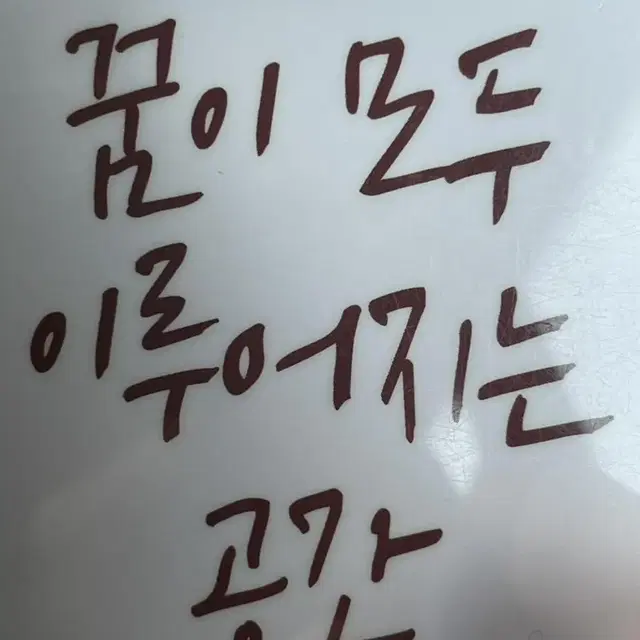 꿈이 모두
이루어지는
공간